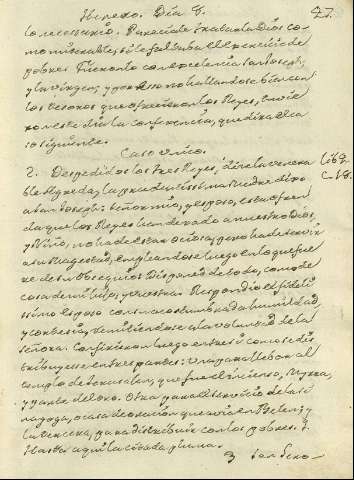 Henero. Dia 8. 27.
lo necessario. Para este trabaxaba Dios co-
mo miserable, si le faltaba el exercicio de
pobres. Tuvieron con excelencia San Joseph,
y la Virgen; y por esso no hallandose bien con
los thesoros que ofrecieron los Reyes, tuvie-
ron este dia la conferencia, que dirà el ca-
so siguiente.
Caso Unico.
2. Despedidos los tres Reyes, dice la Venera
ble Agreda, la gran Señora Madre dixo
a San Joseph: Señor mio, y esposo, esta ofren-
da que los Reyes han dexado a nuestro Dios,
y Niño, no ha de estar ociosa, pero ha de servir
a su Magestad, empleandose luego en lo que fue-
re de su obsequio. Disponed de todo, como de
cosa de mi hijo, y vuestra. Respondio el fideli
simo esposo con su acostumbrada humildad
y cortesia, remitiendose a la voluntad de la
Señora. Confirieron luego entre si como se dis
tribuyesse en tres partes: Una para llevar al
templo de Jerusalen, que fue el incienso, Myrra,
y parte del oro. Otra para el servicio de la Si-
nagoga, o casa de oracion que avia en Belen; y
la tercera, para distribuir con los pobres.
Hasta aqui la citada pluma.
3